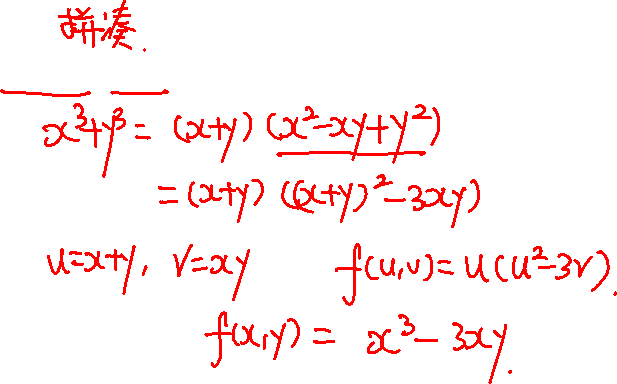 拼凑.
x³+y³ = (x+y)(x²-xy+y²)
=(x+y)((x+y)²-3xy)
u=x+y, v=xy f(u,v)=u(u²-3v).
f(x,y) = x³-3xy.